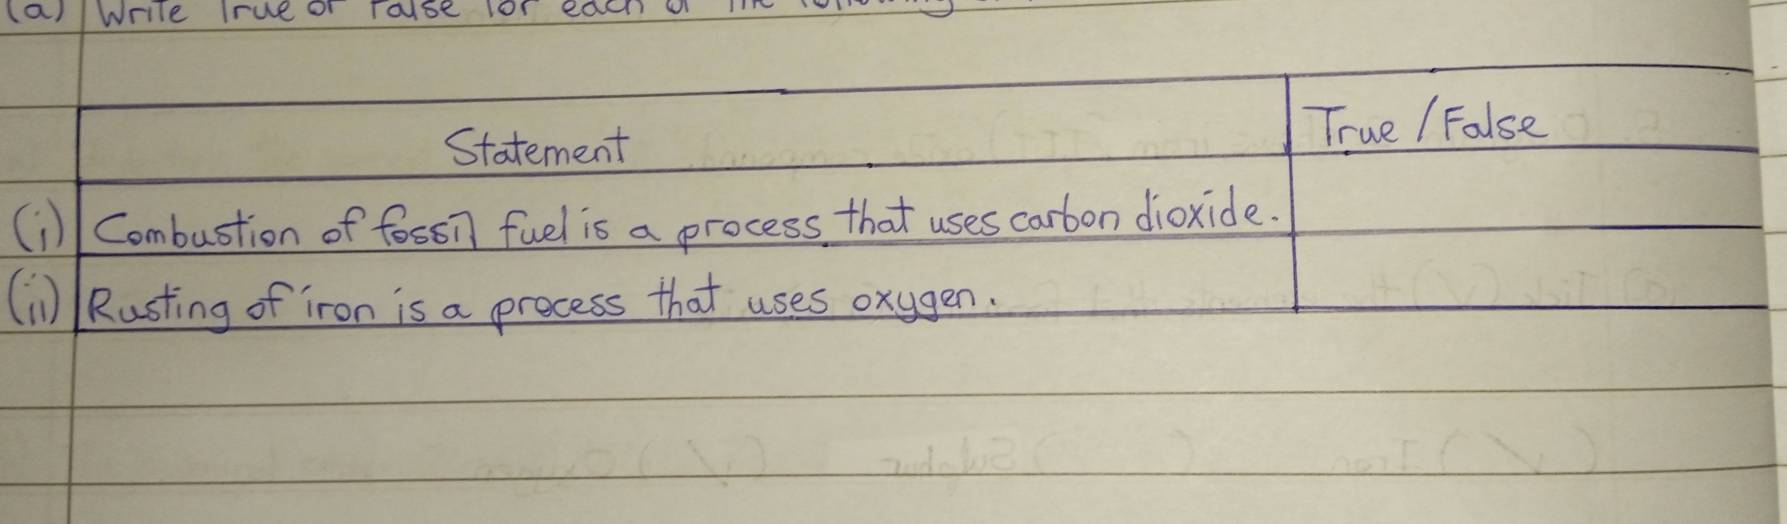 (a) Write True or False for each of the following
Statement True / False
(i) Combustion of fossil fuel is a process that uses carbon dioxide.
(ii) Rusting of iron is a process that uses oxygen.